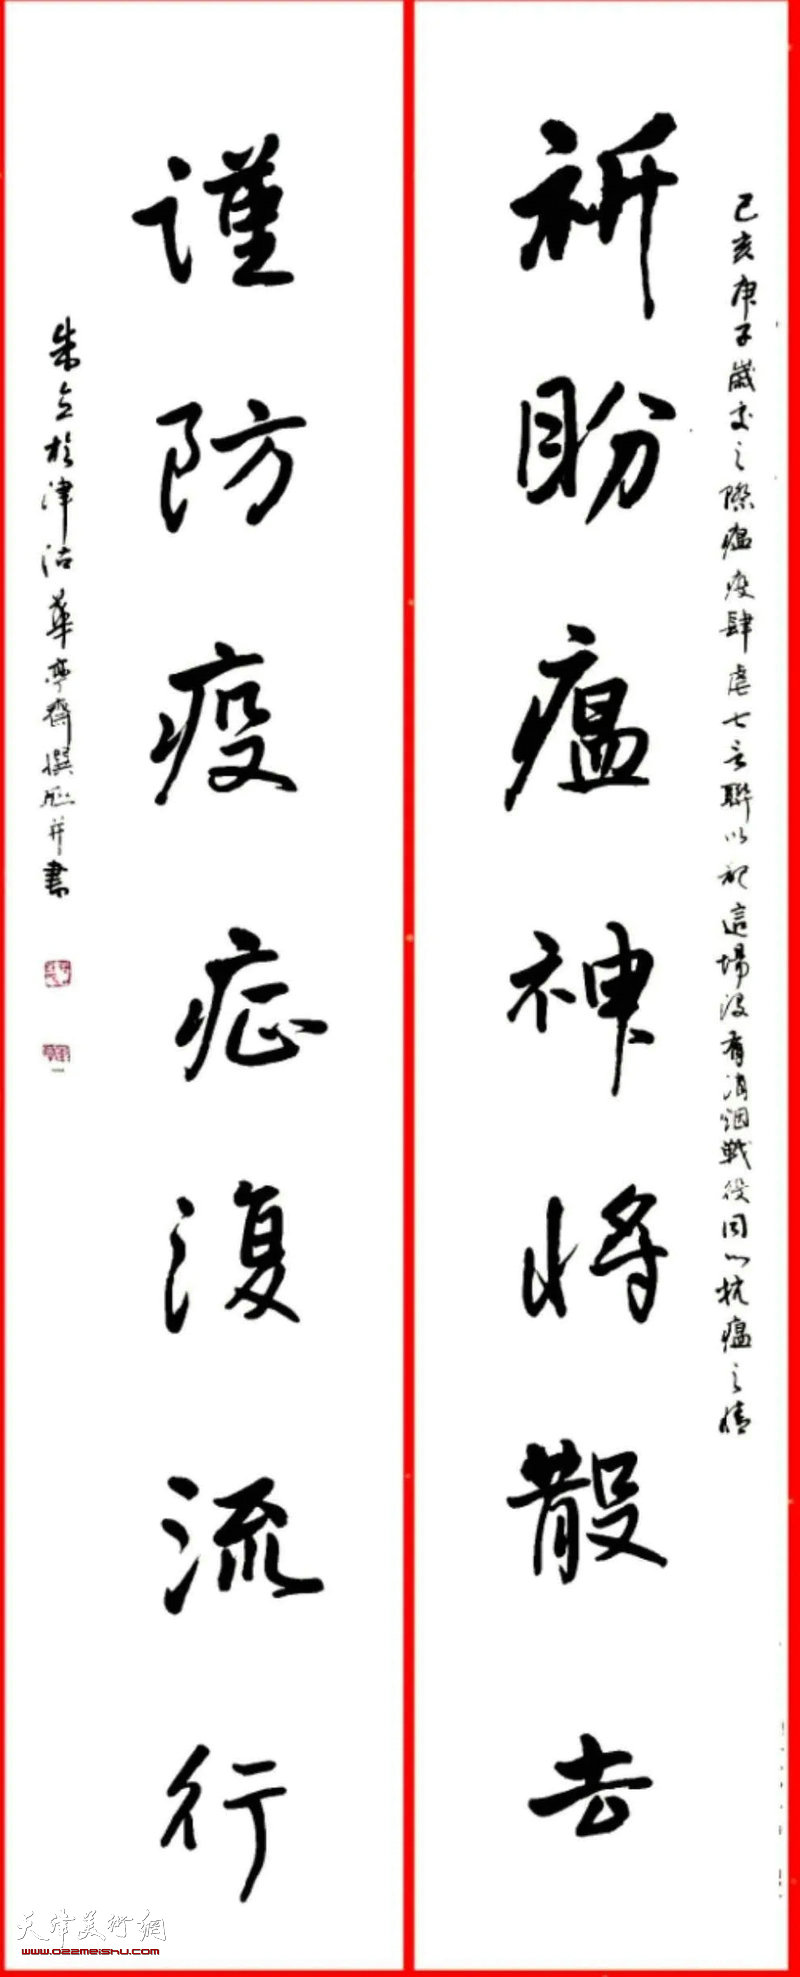 己亥庚子歲交之際瘟疫肆虐七言聯以記這場没有消烟戰役同以抗瘟之情
祈盼瘟神將散去
謹防疫症復流行
朱立於津沽華亭齋撰聯并書
天津美術網
www.022meishu.com